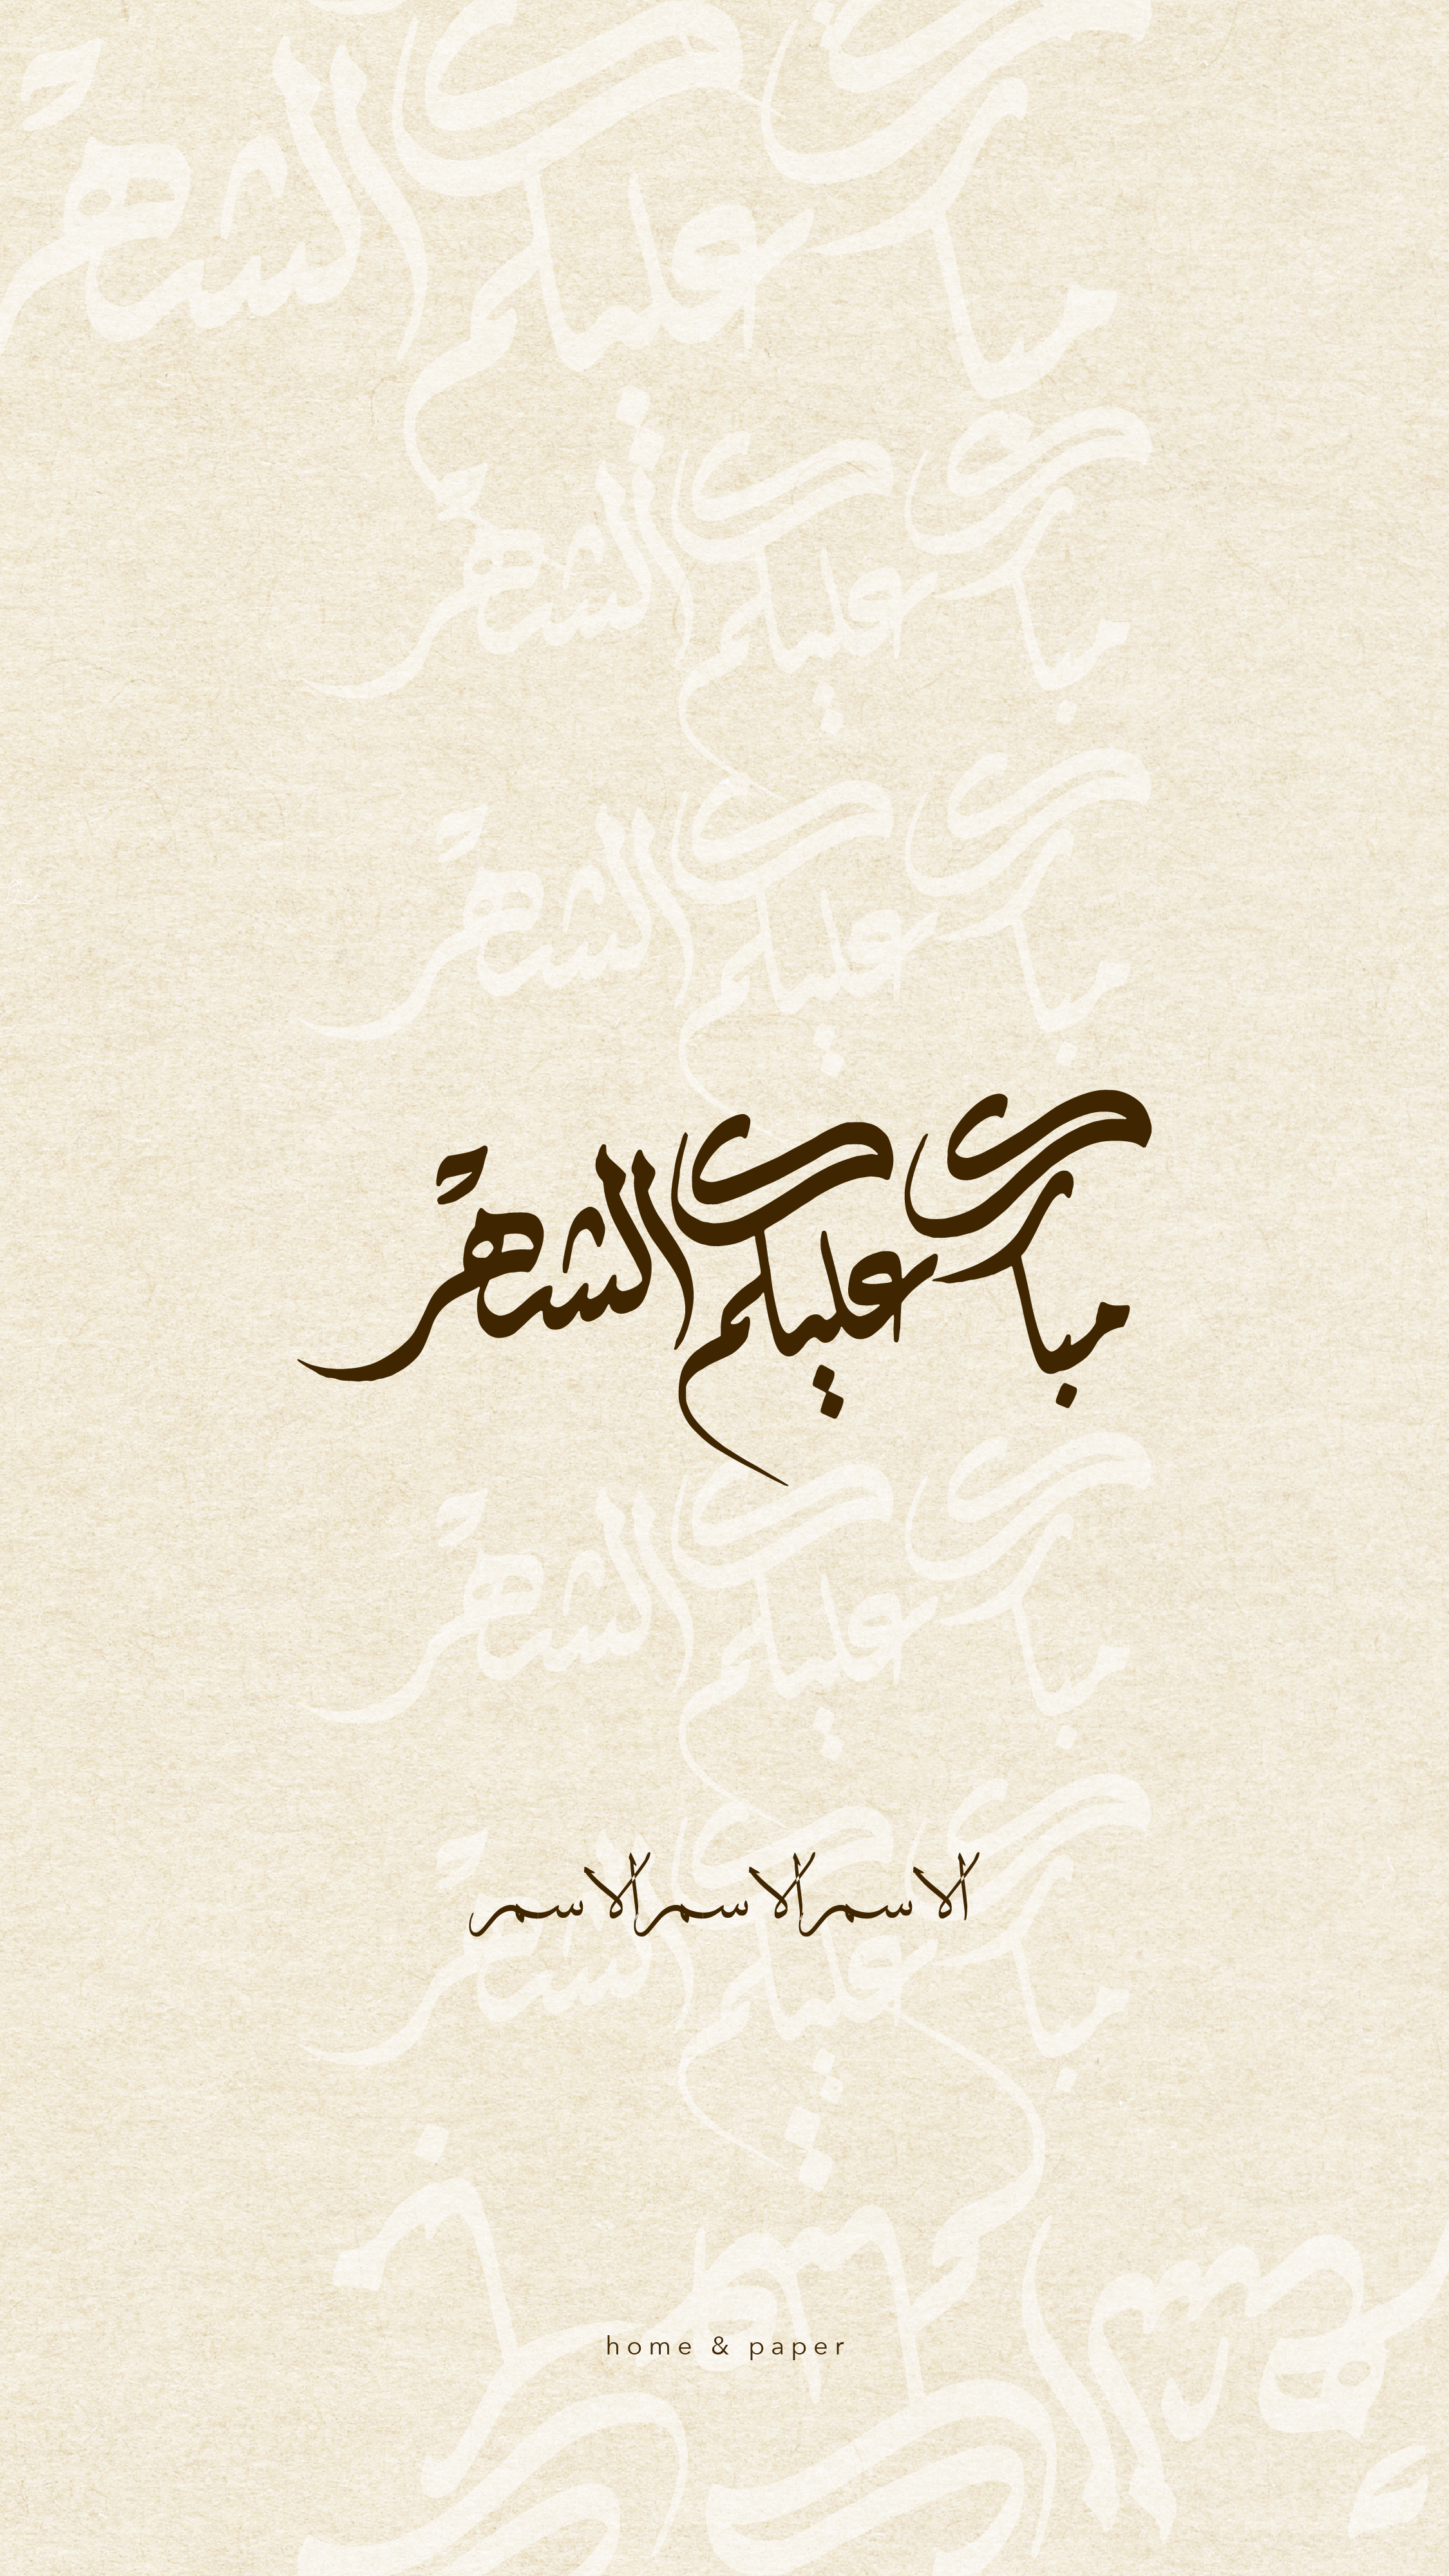 مبارك عليكم الشهر
الاسم الاسم الاسم
home & paper